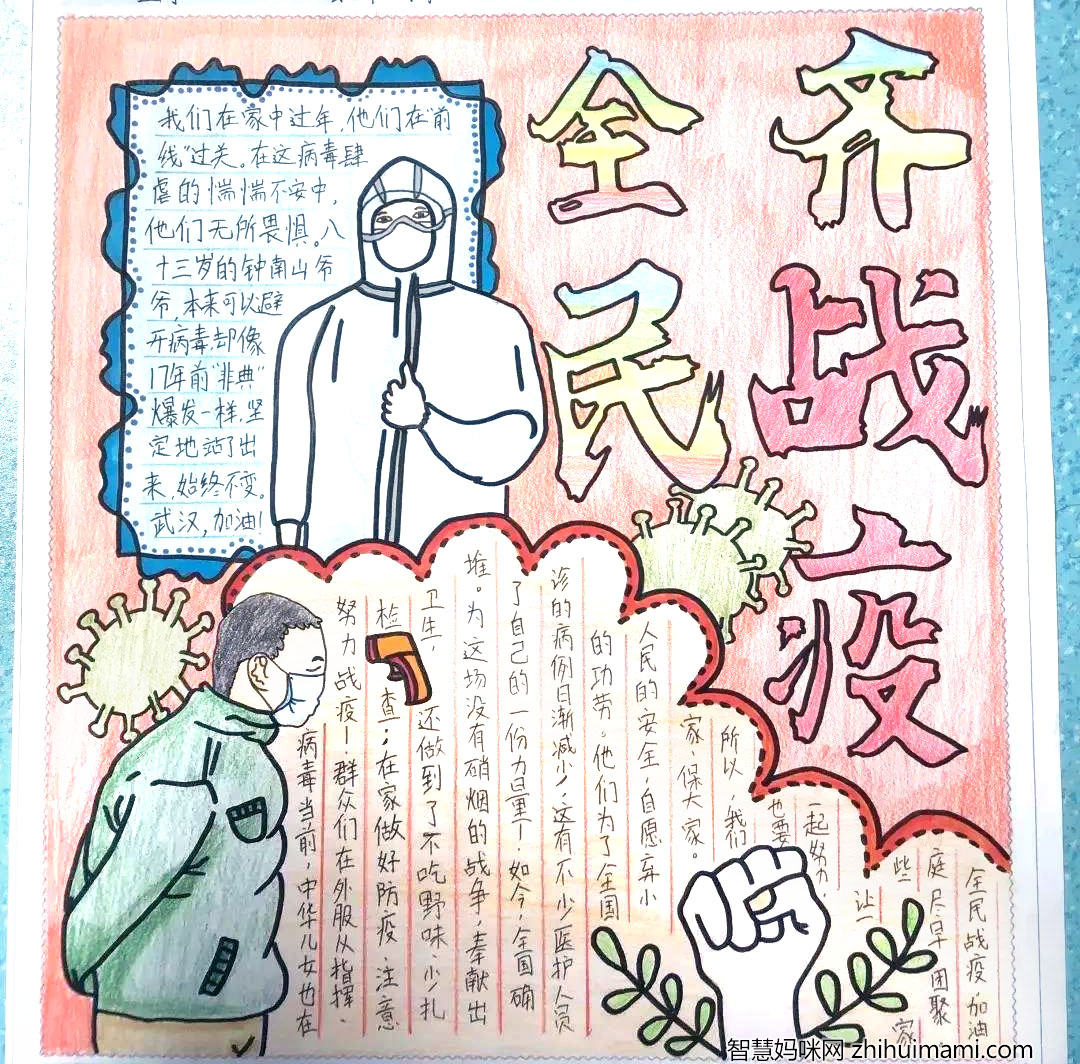 全民
齐战疫
我们在"家中过年,他们在"前
线"过关。在这病毒肆
虐的惴惴不安中,
他们无所畏惧。八
十三岁的钟南山爷
爷,本来可以避
开病毒,却像
17年前"非典"
爆发一样,坚
定地站了出
来,始终不变。
武汉,加油!
病毒当前，中华儿女也在
努力战疫！群众们在外服从指挥、
检查；在家做好防疫、注意
卫生，还做到了不吃野味、少扎
堆。为这场没有硝烟的战争，奉献出
了自己的一份力量！如今，全国确
诊的病例日渐减少，这有不少医护人员
的功劳。他们为了全国
人民的安全，自愿弃小
家、保大家。
所以，我们
也要
一起努力，
让一
些家
庭尽早团聚。
全民战疫加油
智慧妈咪网 zhihuimami.com